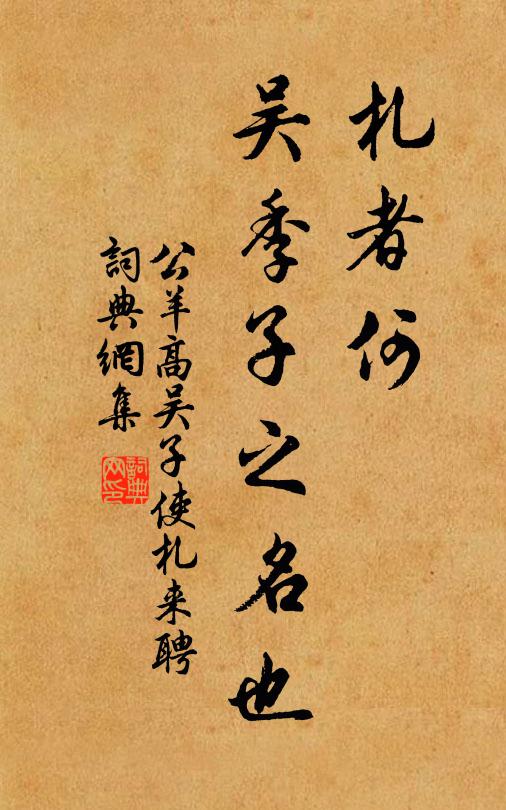 札者何
吴季子之名也
公羊高吴子使札来聘
詞典網集
詞典网印